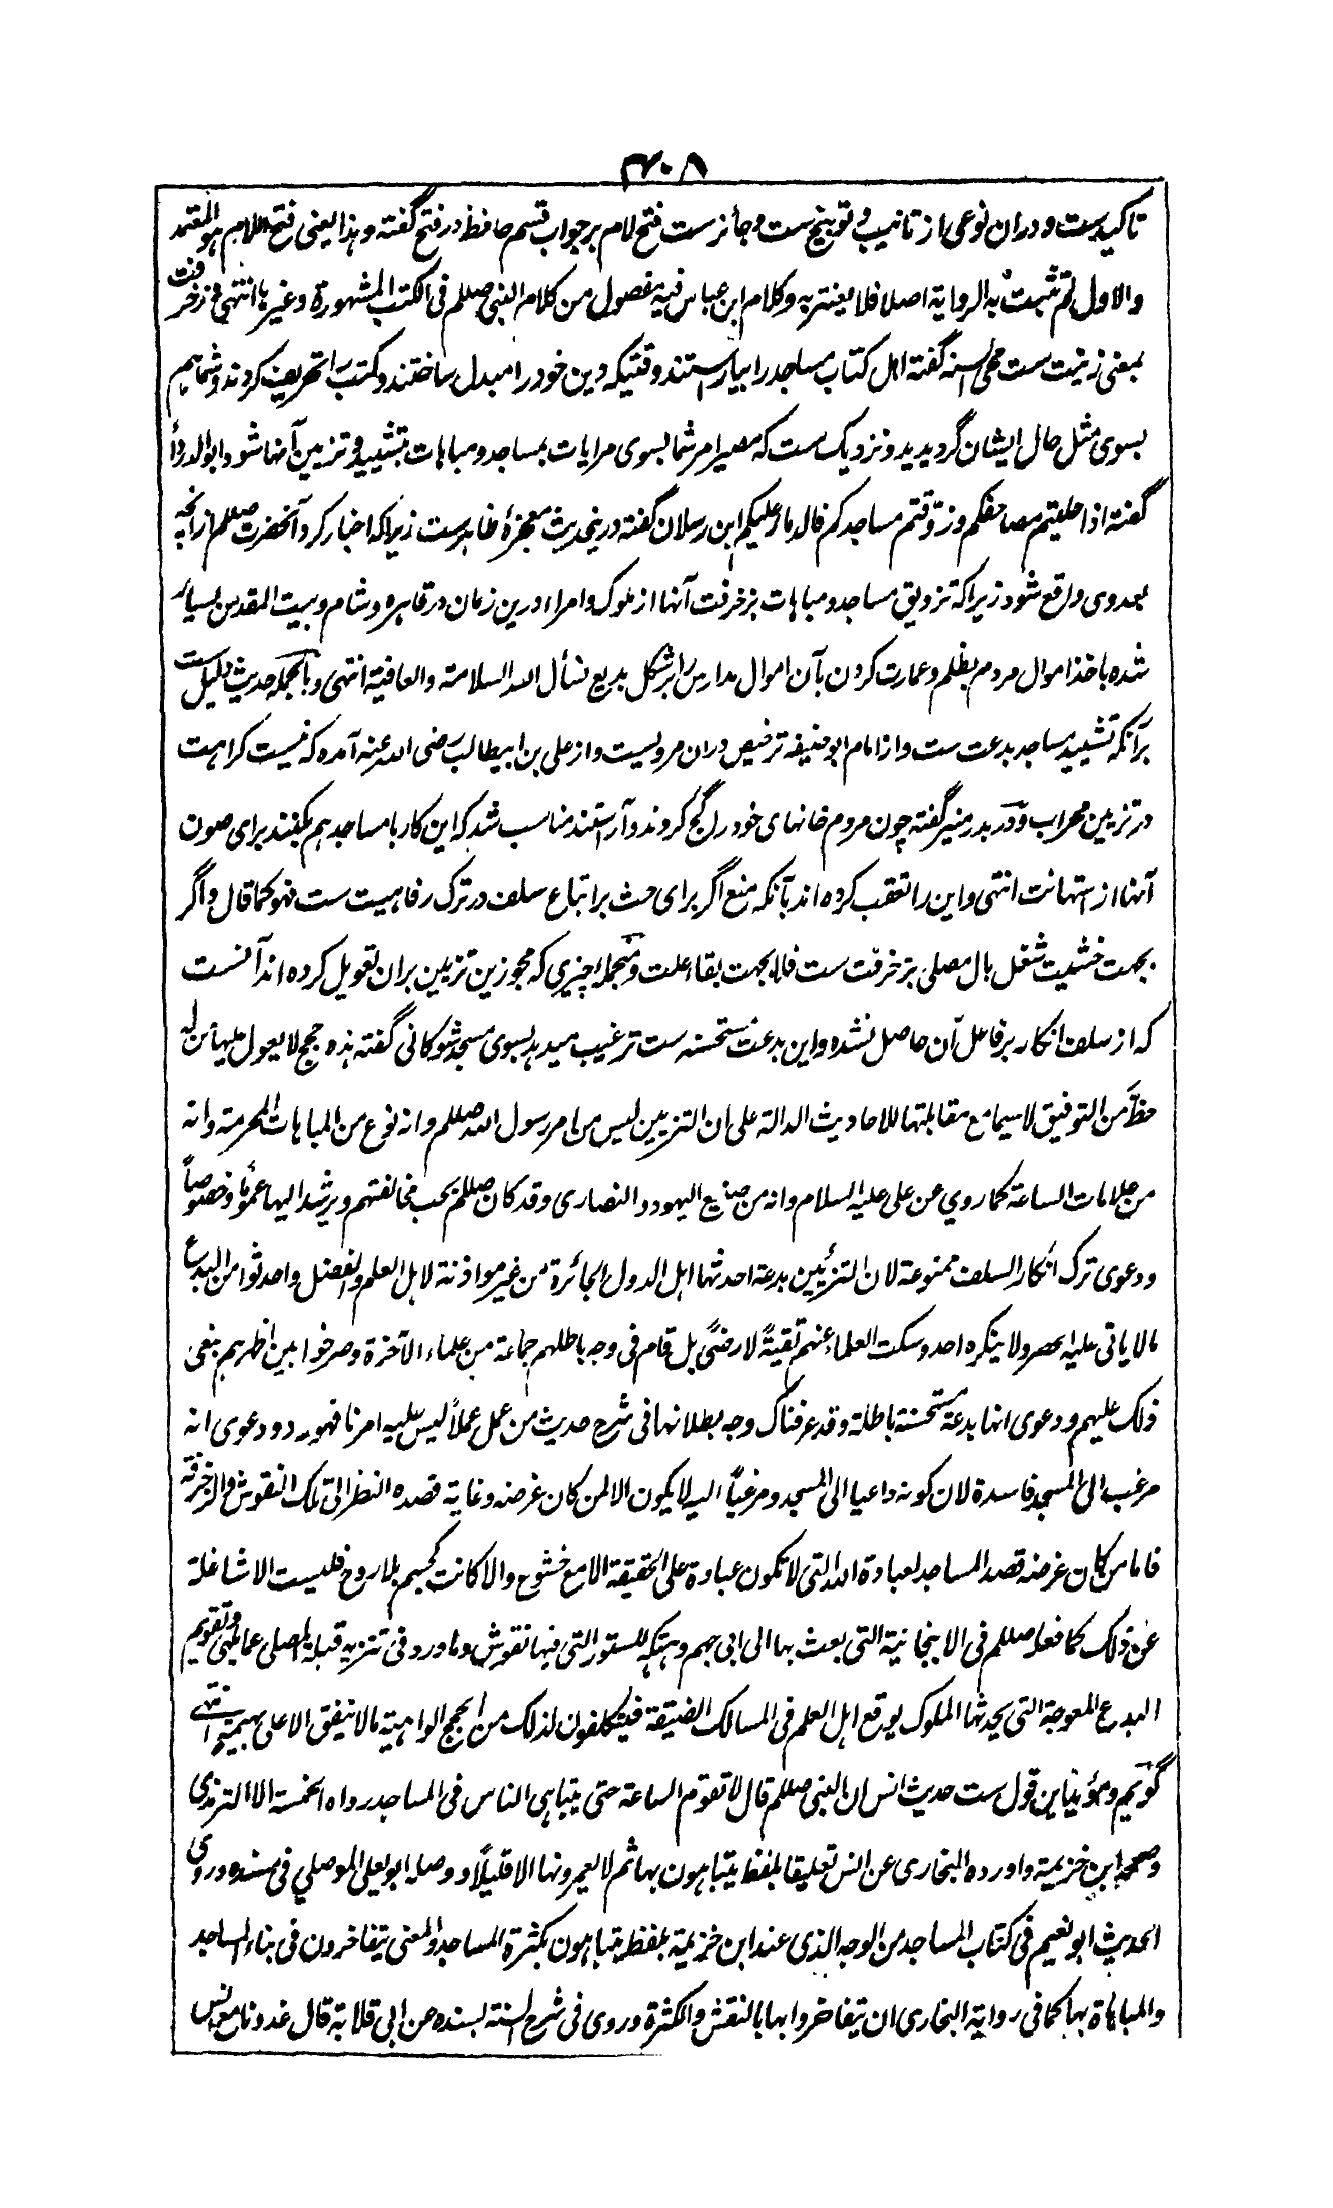 ۳۰۸
تاکید ست و دران نوعی از تانیب و توبیخ ست و جائز ست فتح لام بر جواب قسم حافظ در فتح گفته و هذا یعنی فتح اللام هو المعتمد
والاول لم تثبت به الروایة اصلا فلا یغتر به وکلام ابن عباس فیه مفصول من کلام النبی صللم فی الکتب المشهورة وغیرها انتهی وزخرفت
بمعنی زینت ست محی السنه گفته اهل کتاب مساجد را بیاراستند وقتیکه دین خود را مبدل ساختند و کتب را تحریف کردند و شما هم
بسوی مثل حال ایشان گردیدید و نزدیک ست که مصیر امر شما بسوی مرایات بمساجد و مباهات بتشیید و تزیین آنها شود ابو الدرداء
گفته اذا حلیتم مصاحفکم وزوقتم مساجدکم فالدمار علیکم ابن رسلان گفته درینحدیث معجزۂ ظاهرست زیرا که اخبار کرد آنحضرت صللم ازانچه
بعد وی واقع شود زیرا که تزویق مساجد و مباهات بزخرفت آنها از ملوک و امرا درین زمان در قاهره و شام و بیت المقدس بسیار
شده باخذ اموال مردم بظلم و عمارت کردن بآن اموال مدارس را بر شکل بدیع نسأل الله السلامة والعافیة انتهی و بالجمله حدیث دلیل ست
برآنکه تشیید مساجد بدعت ست و از امام ابو حنیفه ترخیص دران مرویست و از علی بن ابیطالب رضی الله عنه آمده که نیست کراهت
در تزیین محراب و در بدر منیر گفته چون مردم خانهای خود را گچ کردند و آراستند مناسب شد که این کار با مساجد هم بکنند برای صون
آنها از استهانت انتهی و این را تعقب کرده اند بآنکه منع اگر برای حث بر اتباع سلف در ترک رفاهیت ست فهو کما قال و اگر
بجهت خشیت شغل بال مصلی بزخرفت ست فلا بجهت بقاء علت و منجمله چیزی که مجوزین تزیین بران تعویل کرده اند آنست
که از سلف انکار بر فاعل آن حاصل نشده و این بدعت مستحسنه ست ترغیب میدهد بسوی مسجد شوکانی گفته هذه حجج لا یعول علیها من له
حظ من التوفیق لا سیما مع مقابلتها للاحادیث الدالة علی ان التزیین لیس من امر رسول الله صللم وانه نوع من المباهات المحرمة وانه
من علامات الساعة کما روی عن علی علیه السلام وانه من صنیع الیهود والنصاری وقد کان صللم یحب مخالفتهم ویرشد الیها عموما وخصوصاً
ودعوی ترک انکار السلف ممنوعة لان التزئیین بدعة احدثها اهل الدول الجائرة من غیر مواذنة لاهل العلم والفضل واحدثوا من البدع
ما لا یاتی علیه الحصر ولا ینکره احد وسکت العلماء عنهم تقیةً لا رضیً بل قام فی وجه باطلهم جماعة من علماء الآخرة وصرخوا بین اظهرهم بنعی
ذلک علیهم ودعوی انها بدعة مستحسنة باطلة وقد عرفناک وجه بطلانها فی شرح حدیث من عمل عملاً لیس علیه امرنا فهو رد ودعوی انه
مرغب الی المسجد فاسدة لان کونه داعیا الی المسجد ومرغباً الیه لا یکون الا لمن کان غرضه وغایة قصده النظر الی تلک النقوش والزخرفة
فاما من کان غرضه قصد المساجد لعبادة الله التی لا تکون عبادة علی الحقیقة الا مع خشوع والا کانت کجسم بلا روح فلیست الا شاغلة
عن ذلک کما فعله صللم فی الانبجانیة التی بعث بها الی ابی جهم وهتکه للستور التی فیها نقوش وما ورد فی تنزیه قبلة المصلی عما یلهی وتقویم
البدع المعوجة التی یحدثها الملوک یوقع اهل العلم فی المسالک الضیقة فیتکلفون لذلک من الحجج الواهیة ما لا ینفق الا علی بهیمة انتهی
گویم و مؤید این قول ست حدیث انس ان النبی صللم قال لا تقوم الساعة حتی یتباهی الناس فی المساجد رواه الخمسة الا الترمذی
وصححه ابن خزیمة واورده البخاری عن انس تعلیقا بلفظ یتباهون بها ثم لا یعمرونها الا قلیلاً ووصله ابو یعلی الموصلی فی مسنده وروی
الحدیث ابو نعیم فی کتاب المساجد من الوجه الذی عند ابن خزیمة بلفظ یتباهون بکثرة المساجد والمعنی یتفاخرون فی بناء المساجد
والمباهاة بها کما فی روایة البخاری ان یتفاخروا بها بالنقش والکثرة وروی فی شرح السنة بسنده عن ابی قلابة قال غدونا مع انس